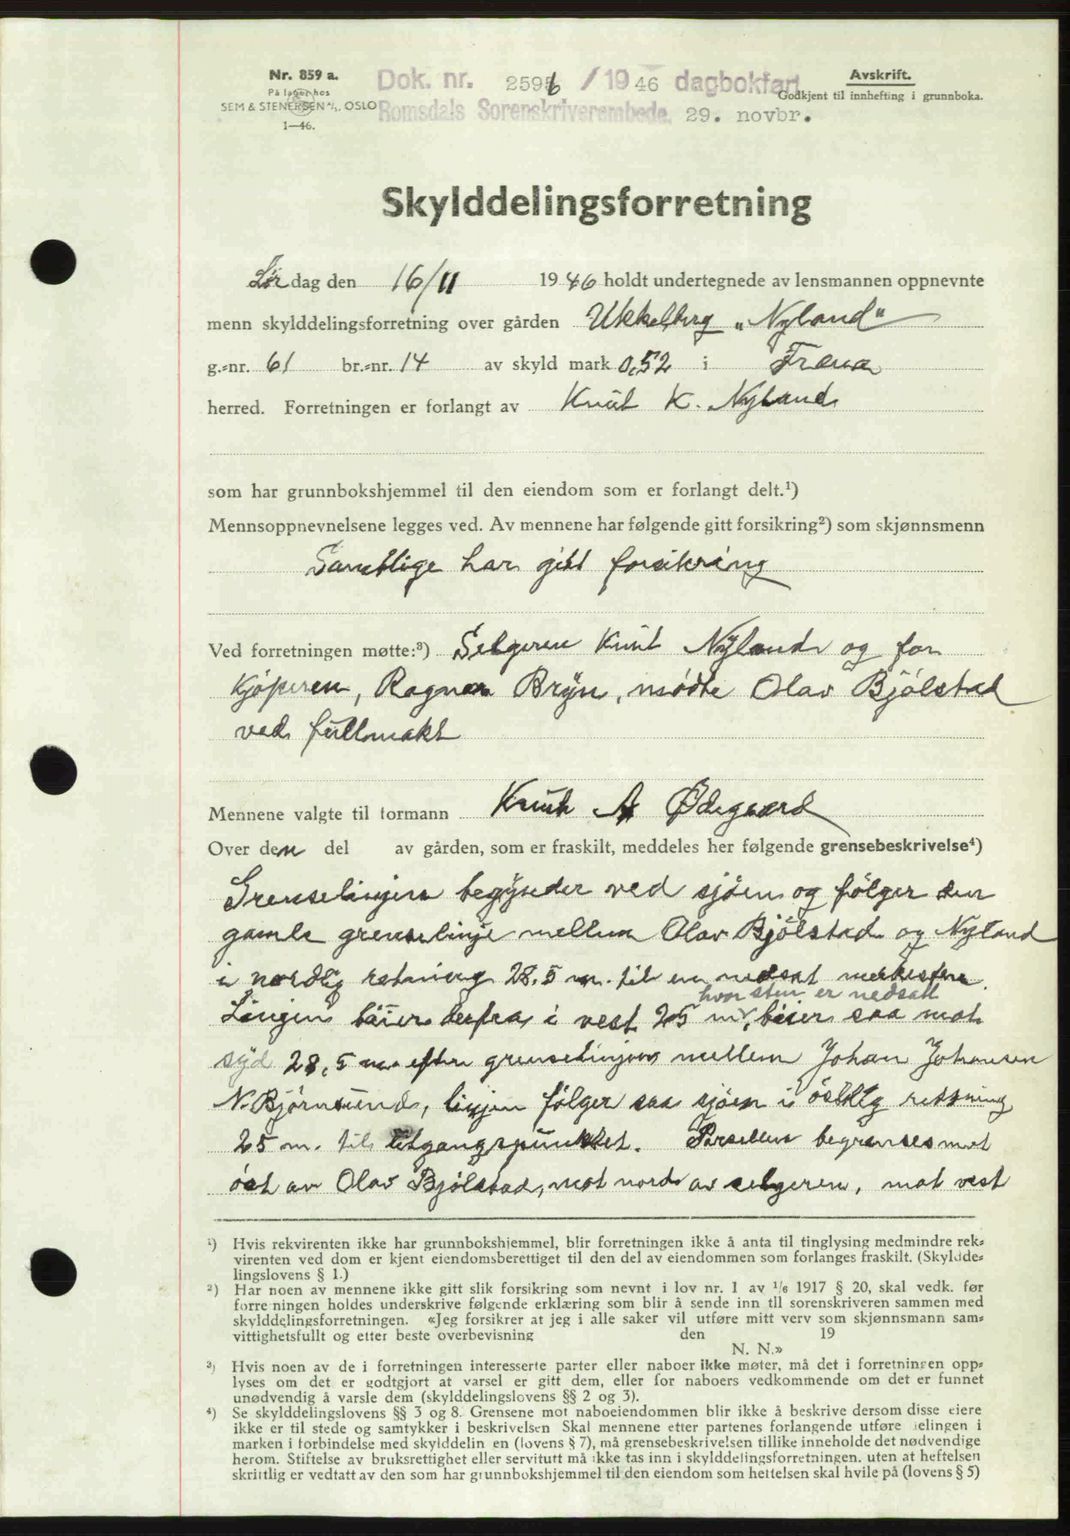 Nr. 859 a.
På lager hos
SEM & STENERSEN A/S, OSLO
1—46.
Dok. nr. 2596 /1946 dagbokført
Romsdals Sorenskriverembede, 29. novbr.
Avskrift.
Godkjent til innhefting i grunnboka.
Skylddelingsforretning
Lørdag den 16/11 1946 holdt undertegnede av lensmannen oppnevnte
menn skylddelingsforretning over gården Ukkelberg "Nyland"
g.-nr. 61 br.-nr. 14 av skyld mark 0,52 i Fræna
herred. Forretningen er forlangt av Knut K. Nyland
som har grunnbokshjemmel til den eiendom som er forlangt delt.¹)
Mennsoppnevnelsene legges ved. Av mennene har følgende gitt forsikring²) som skjønnsmenn
Samtlige har gitt forsikring
Ved forretningen møtte:³) Selgeren Knut Nyland og for
kjøperen, Ragnar Bryn, mødte Olav Bjølstad
ved fullmakt
Mennene valgte til formann Knut A Ødegaard
Over den del av gården, som er fraskilt, meddeles her følgende grensebeskrivelse⁴)
Grenselinjen begynder ved sjøen og følger den
gamle grenselinje mellem Olav Bjølstad og Nyland
i nordlig retning 28,5 m. til en nedsat merkesten.
hvor sten er nedsatt
Linjen bøier derfra i vest 25 m, bøier saa mot
syd 28,5 m efter grenselinjen mellem Johan Johansen
N. Bjørnsund, linjen følger saa sjøen i østlig retning
25 m. til utgangspunktet. Parsellen begrenses mot
øst av Olav Bjølstad, mot nord av selgeren, mot vest
¹) Hvis rekvirenten ikke har grunnbokshjemmel, blir forretningen ikke å anta til tinglysing medmindre rek-
virenten ved dom er kjent eiendomsberettiget til den del av eiendommen som forlanges fraskilt. (Skyldde-
lingslovens § 1.)
²) Har noen av mennene ikke gitt slik forsikring som nevnt i lov nr. 1 av 1/6 1917 § 20, skal vedk. før
forretningen holdes underskrive følgende erklæring som blir å sende inn til sorenskriveren sammen med
skylddelingsforretningen. «Jeg forsikrer at jeg i alle saker vil utføre mitt verv som skjønnsmann sam-
vittighetsfullt og etter beste overbevisning den 19
N. N.»
³) Hvis noen av de i forretningen interesserte parter eller naboer ikke møter, må det i forretningen opp-
lyses om det er godtgjort at varsel er gitt dem, eller for naboers vedkommende om det er funnet
unødvendig å varsle dem (skylddelingslovens §§ 2 og 3).
⁴) Se skylddelingslovens §§ 3 og 8. Grensene mot naboeiendommen blir ikke å beskrive dersom disse eiere
ikke er til stede og samtykker i beskrivelsen Skal mennene etter partenes forlangende utføre delingen i
marken i forbindelse med skylddelin en (lovens § 7), må grensebeskrivelsen tillike inneholde det nødvendige
herom. Stiftelse av bruksrettighet eller servitutt må ikke tas inn i skylddelingsforretningen. uten at heftelsen
skriftlig er vedtatt av den som har grunnbokshjemmel til den eiendom som heftelsen skal hvile på (lovens § 5)